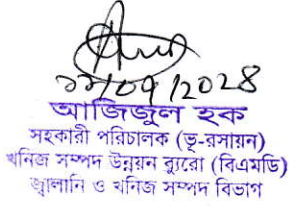 ১১/০৭/২০২৪
আজিজুল হক
সহকারী পরিচালক (ভূ-রসায়ন)
খনিজ সম্পদ উন্নয়ন ব্যুরো (বিএমডি)
জ্বালানি ও খনিজ সম্পদ বিভাগ